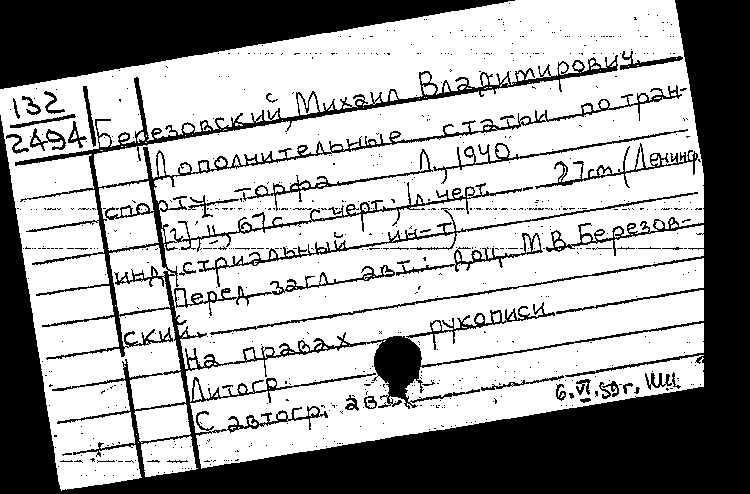 132
2494
Березовский, Михаил Владимирович.
Дополнительные статьи по тран-
спорту торфа. Л., 1940.
[2], II, 67 с. с черт.; 1 л. черт. 27 см. (Ленингр.
индустриальный ин-т)
Перед загл. авт.: доц. М.В. Березов-
ский.
На правах рукописи
Литогр.
С автогр. авт.
6.VI.59 г.